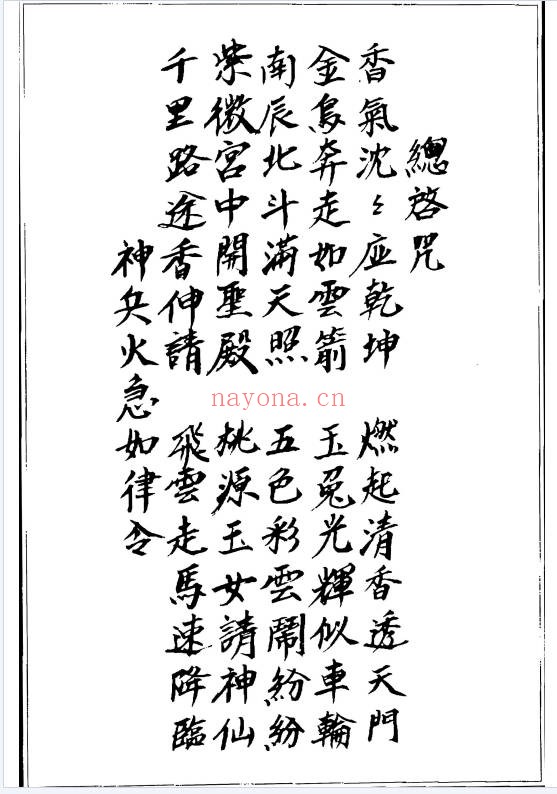 總啓咒
香氣沈〻应乾坤 燃起清香透天門
金烏奔走如雲箭 玉兔光輝似車輪
南辰北斗滿天照 五色彩雲鬧紛紛
紫微宮中開聖殿 桃源玉女請神仙
千里路途香伸請 飛雲走馬速降臨
神兵火急如律令
nayona.cn